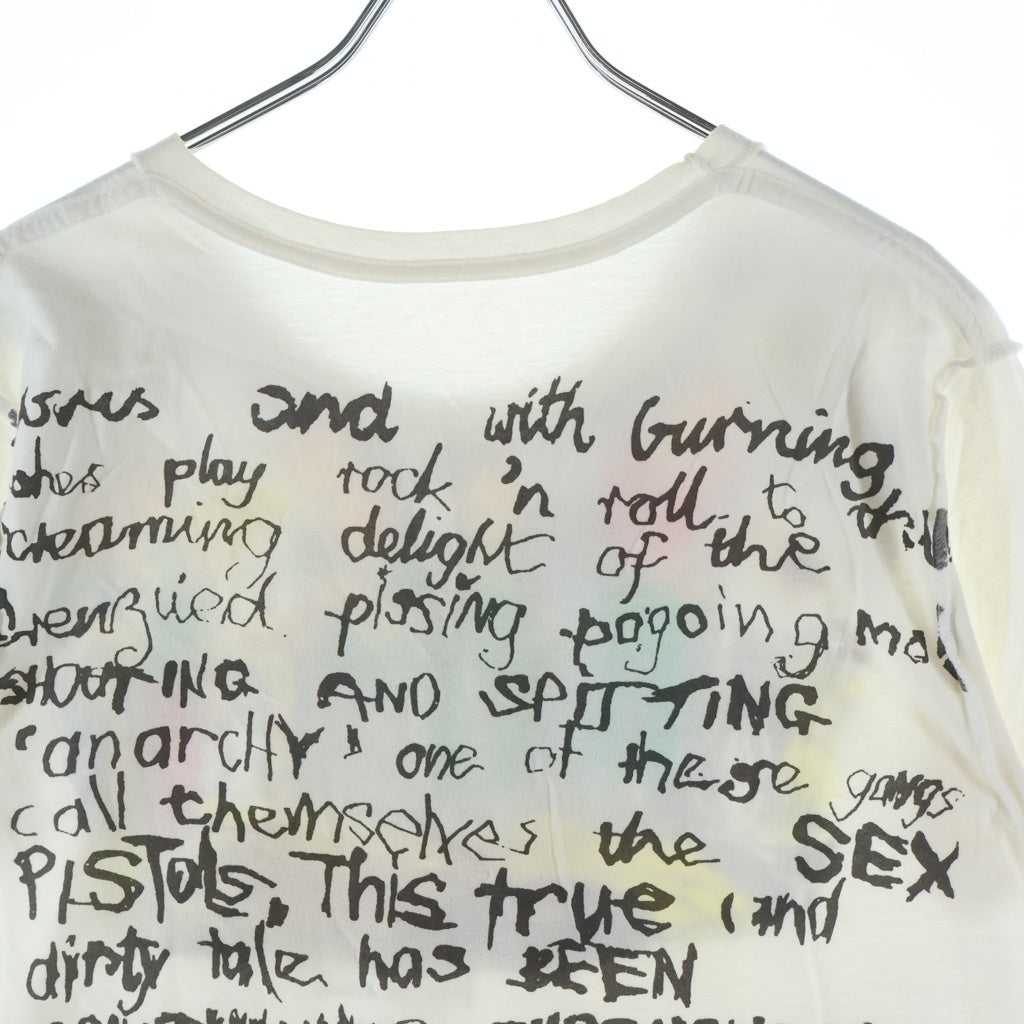 and with Gurning
play rock 'n roll to
screaming delight of the
frenzied pissing pogoing
SHOUTING AND SPITTING
'anarchy' one of these gangs
call themselves the SEX
PISTOLS. This true (and
dirty tale has BEEN